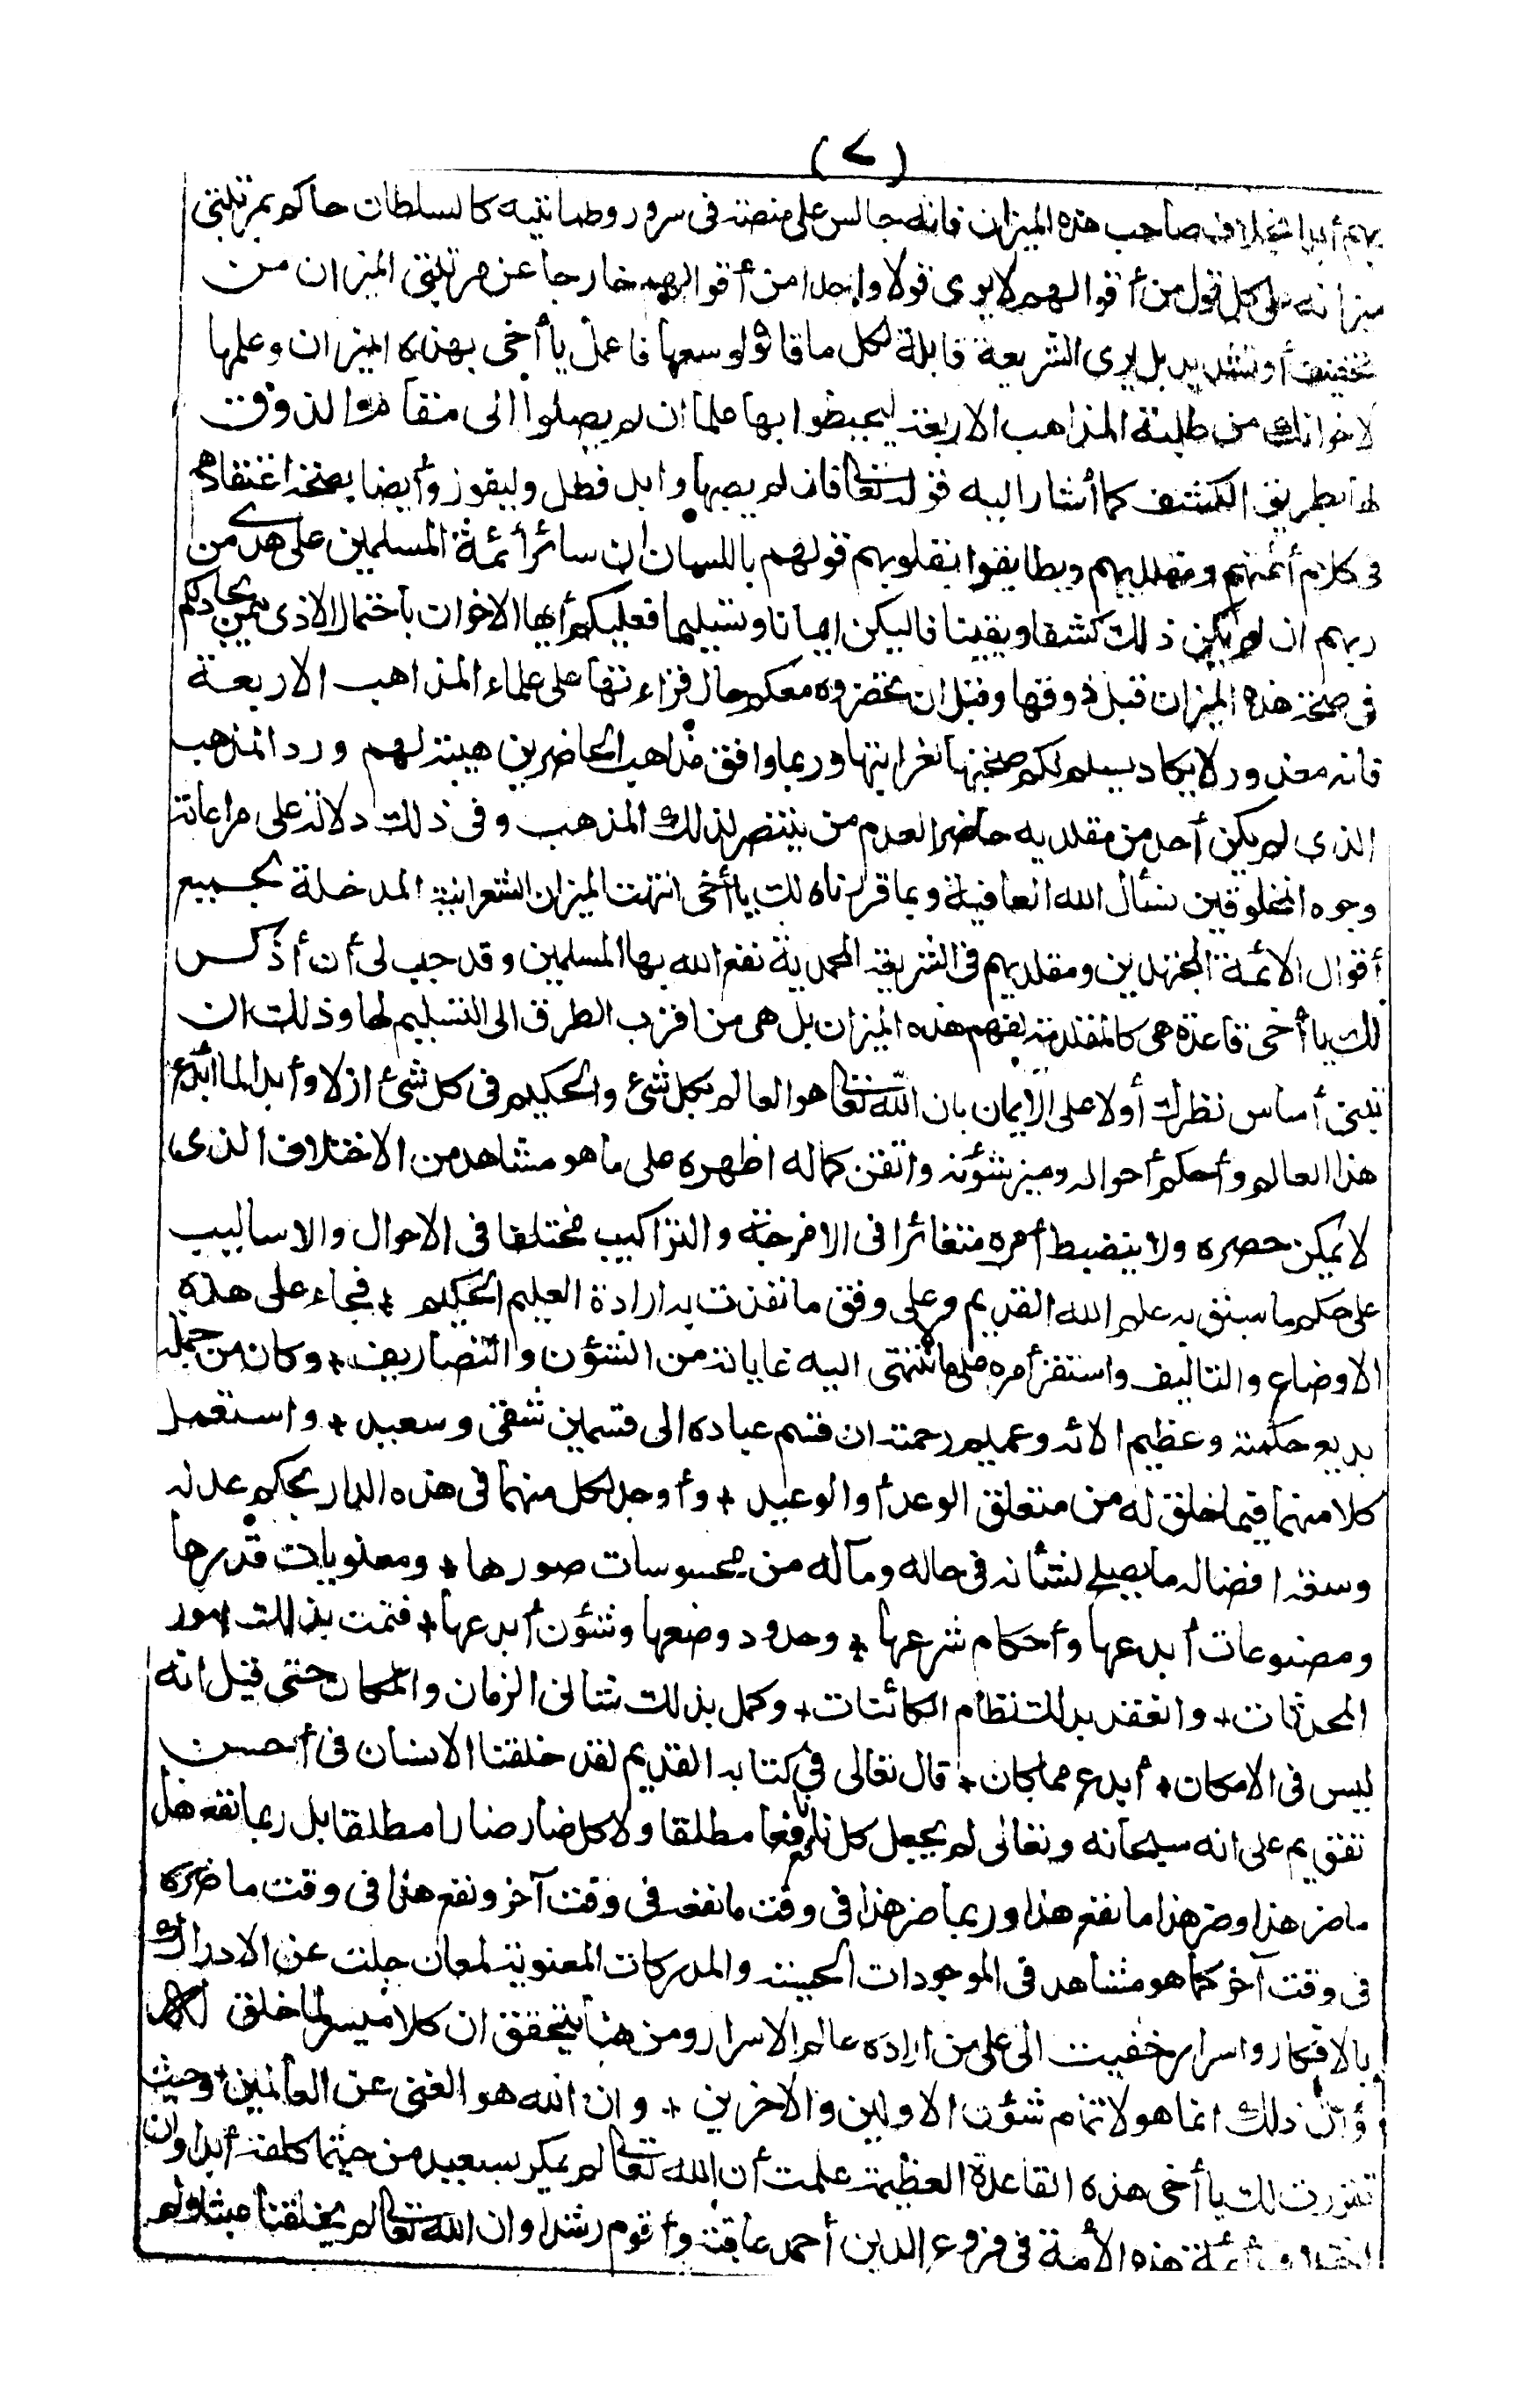 (٧)
بهم أبدا بخلاف صاحب هذه الميزان فانه جالس على منصة فى سرور وطمانينة كالسلطان حاكم بمرتبتى
ميزانه على كل قول من أقوالهم لا يرى قولا واحدا من أقوالهم خارجا عن مرتبتى الميزان من
تخفيف أو تشديد بل يرى الشريعة قابلة لكل ما قالوه لوسعها فاعمل يا أخى بهذه الميزان وعلمها
لاخوانك من طلبة المذاهب الاربعة ليحيطوا بها علما ان لم يصلوا الى مقام الذوق
لها بطريق الكشف كما أشار اليه قوله تعالى فان لم يصبها وابل فطل وليفوزوا أيضا بصحة اعتقادهم
فى كلام أئمتهم ومقلديهم ويطابقوا بقلوبهم قولهم باللسان ان سائر أئمة المسلمين على هدى من
ربهم ان لم يكن ذلك كشفا ويقينا فاليكن ايمانا وتسليما فعليكم أيها الاخوان باحتمال الاذى ممن يجادلكم
فى صحة هذه الميزان قبل ذوقها وقبل ان تحضروه معكم حال قراءتها على علماء المذاهب الاربعة
فانه معذور لا يكاد يسلم لكم صحتها لغرابتها وربما وافق مذاهب الحاضرين هيبة لهم ورد المذهب
الذى لم يكن أحد من مقلديه حاضرا لعدم من ينتصر لذلك المذهب وفى ذلك دلالة على مراعاة
وجوه المخلوقين نسأل الله العافية وبما قررناه لك يا أخى انتهت الميزان الشعرانية المدخلة لجميع
أقوال الائمة المجتهدين ومقلديهم فى الشريعة المحمدية نفع الله بها المسلمين وقد حبب لى أن أذكر
لك يا أخى قاعدة هى كالمقدمة لفهم هذه الميزان بل هى من اقرب الطرق الى التسليم لها وذلك ان
تبنى أساس نظرك أولا على الايمان بان الله تعالى هو العالم بكل شئ والحكيم فى كل شئ ازلا وأبدا لما أبدع
هذا العالم وأحكم أحواله وميز شؤنه واتقن كماله اظهره على ما هو مشاهد من الاختلاف الذى
لا يمكن حصره ولا ينضبط أمره متغائرا فى الامزجة والتراكيب مختلفا فى الاحوال والاساليب
على حكم ما سبق به علم الله القديم وعلى وفق ما نفذت به ارادة العليم الحكيم + فجاء على هذه
الاوضاع والتاليف واستقر أمره على ما تنتهى اليه غاياته من الشؤن والتصاريف + وكان من جملة
بديع حكمته وعظيم الائه وعميم رحمته ان قسم عباده الى قسمين شقى وسعيد + واستعمل
كلا منهما فيما خلق له من متعلق الوعد أو الوعيد + وأوجد لكل منهما فى هذه الدار بحكم عدله
وسعة افضاله ما يصلح لشأنه فى حاله ومآله من محسوسات صورها + ومعنويات قدرها
ومصنوعات أبدعها وأحكام شرعها + وحدود وضعها وشئون أبدعها + فتمت بذلك امور
المحدثات + وانعقد بذلك نظام الكائنات + وكمل بذلك شتالى الزمان والمكان حتى قيل انه
ليس فى الامكان + أبدع مما كان + قال تعالى فى كتابه القديم لقد خلقنا الانسان فى أحسن
تقويم على انه سبحانه وتعالى لم يجعل كل نافع نافعا مطلقا ولا كل ضار ضارا مطلقا بل ربما نفع هذا
ما ضر هذا وضر هذا ما نفع هذا وربما ضر هذا فى وقت ما نفعه فى وقت آخر ونفع هذا فى وقت ما ضره
فى وقت آخر كما هو مشاهد فى الموجودات الحسية والمدركات المعنوية لمعان جلت عن الادراك
بالافكار واسرار خفيت الى على من اراده عالم الاسرار ومن هنا يتحقق ان كلا ميسر لما خلق له
وأن ذلك انما هو لاتمام شؤن الاولين والاخرين + وان الله هو الغنى عن العالمين + وحيث
تقررت لك يا أخى هذه القاعدة العظيمة علمت أن الله تعالى لم يمكر بسعيد من حيثما كلفه أبدا وان
اختلاف أئمة هذه الأمة فى فروع الدين أحمد عاقبة وأقوم رشدا وان الله تعالى لم يخلقنا عبثا ولم